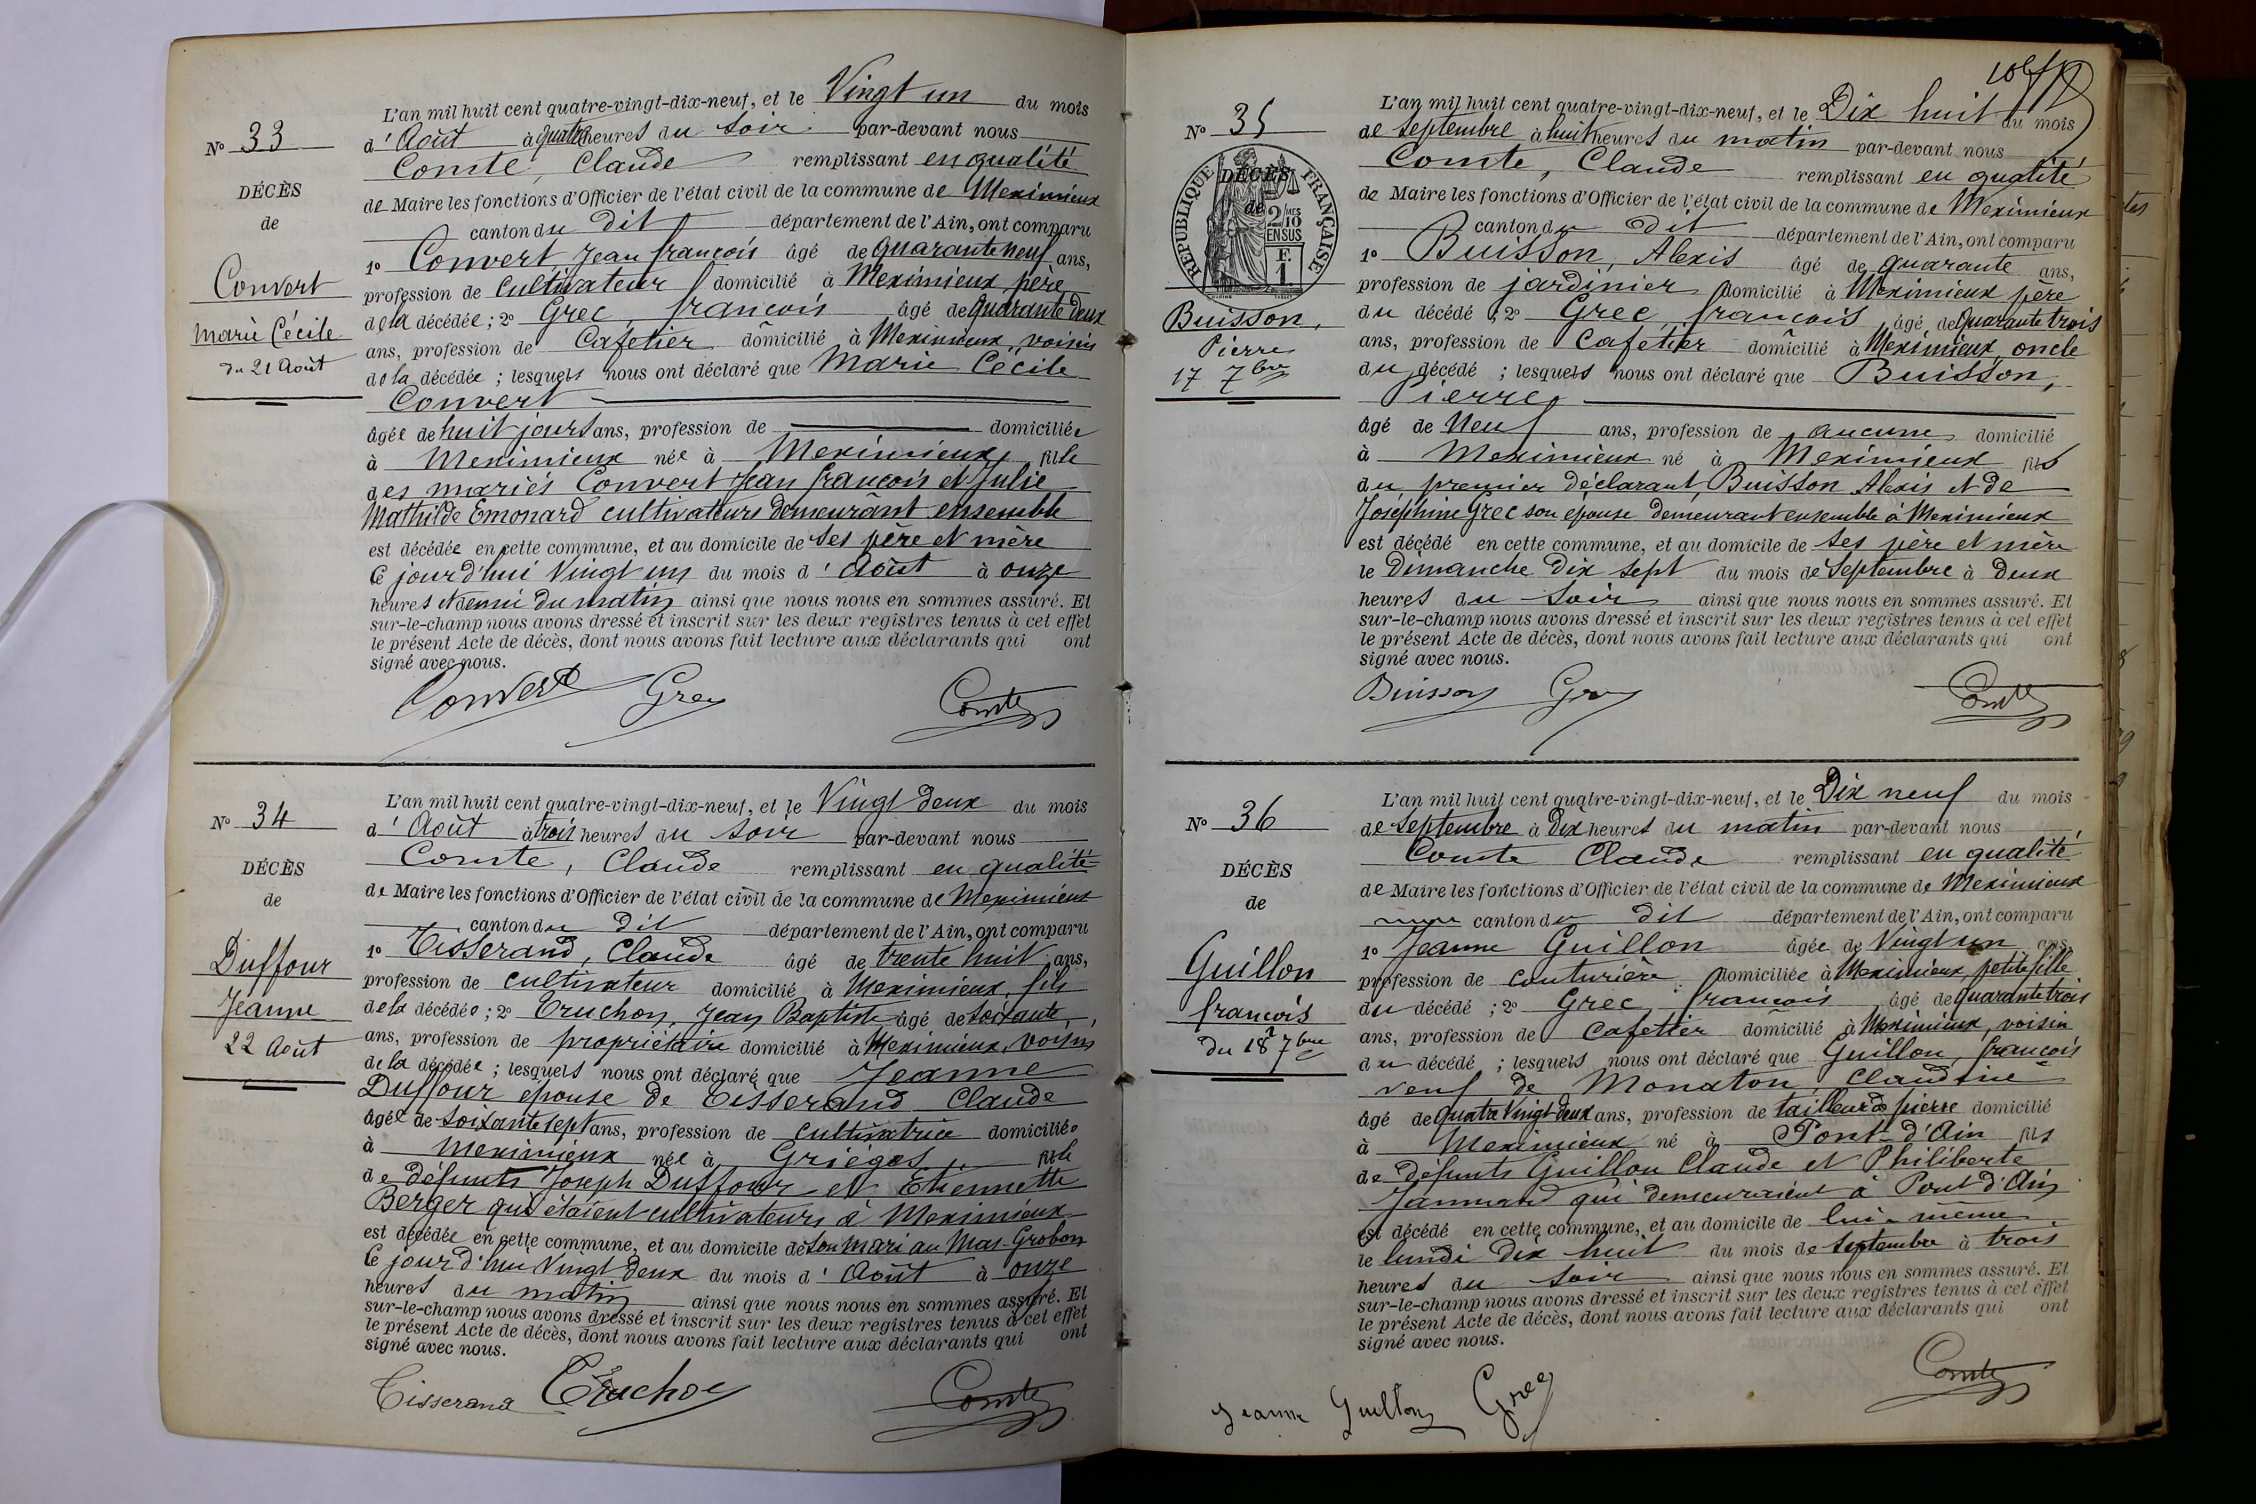 N° 33
DÉCÈS
de
Convert
Marie Cécile
du 21 Août
L'an mil huit cent quatre-vingt-dix-neuf, et le Vingt un du mois
d'Août à quatre heures du soir par-devant nous
Comte, Claude remplissant en qualité
de Maire les fonctions d'Officier de l'état civil de la commune de Meximieux
canton du dit département de l'Ain, ont comparu
1° Convert Jean françois âgé de quarante neuf ans,
profession de Cultivateur domicilié à Meximieux, père
de la décédée ; 2° Grec, françois âgé de quarante deux
ans, profession de Cafetier domicilié à Meximieux, voisin
de la décédée ; lesquels nous ont déclaré que Marie Cécile
Convert
âgée de huit jours ans, profession de domiciliée
à Meximieux née à Meximieux fille
des mariés Convert Jean françois et Julie
Mathilde Emonard cultivateurs demeurant ensemble
est décédée en cette commune, et au domicile de ses père et mère
Ce jourd'hui Vingt un du mois d'Août à onze
heures et demi du matin ainsi que nous nous en sommes assuré. Et
sur-le-champ nous avons dressé et inscrit sur les deux registres tenus à cet effet
le présent Acte de décès, dont nous avons fait lecture aux déclarants qui ont
signé avec nous.
Convert Grec Comte
N° 34
DÉCÈS
de
Duffour
Jeanne
22 Août
L'an mil huit cent quatre-vingt-dix-neuf, et le Vingt deux du mois
d'Août à trois heures du soir par-devant nous
Comte, Claude remplissant en qualité
de Maire les fonctions d'Officier de l'état civil de la commune de Meximieux
canton du dit département de l'Ain, ont comparu
1° Tisserand, Claude âgé de trente huit ans,
profession de cultivateur domicilié à Meximieux, fils
de la décédée ; 2° Truchon, Jean Baptiste âgé de soixante
ans, profession de propriétaire domicilié à Meximieux, voisin
de la décédée ; lesquels nous ont déclaré que Jeanne
Duffour épouse de Tisserand Claude
âgée de soixante sept ans, profession de cultivatrice domiciliée
à Meximieux née à Grièges fille
de défunts Joseph Duffour et Etiennette
Berger qui étaient cultivateurs à Meximieux
est décédée en cette commune, et au domicile de son mari au Mas-Grobon
Ce jourd'hui Vingt deux du mois d'Août à onze
heures du matin ainsi que nous nous en sommes assuré. Et
sur-le-champ nous avons dressé et inscrit sur les deux registres tenus à cet effet
le présent Acte de décès, dont nous avons fait lecture aux déclarants qui ont
signé avec nous.
Tisserand Truchon Comte
N° 35
RÉPUBLIQUE FRANÇAISE
2/10 MES
EN SUS
F.
1.
DÉCÈS
de
Buisson,
Pierre
17 7bre
L'an mil huit cent quatre-vingt-dix-neuf, et le Dix huit du mois
de septembre à huit heures du matin par-devant nous
Comte, Claude remplissant en qualité
de Maire les fonctions d'Officier de l'état civil de la commune de Meximieux
canton du dit département de l'Ain, ont comparu
1° Buisson, Alexis âgé de quarante ans,
profession de jardinier domicilié à Meximieux père
du décédé ; 2° Grec, françois âgé de quarante trois
ans, profession de Cafetier domicilié à Meximieux, oncle
du décédé ; lesquels nous ont déclaré que Buisson,
Pierre
âgé de Neuf ans, profession de aucune domicilié
à Meximieux né à Meximieux fils
du premier déclarant, Buisson Alexis et de
Joséphine Grec son épouse demeurant ensemble à Meximieux
est décédé en cette commune, et au domicile de ses père et mère
le Dimanche Dix sept du mois de Septembre à Deux
heures du soir ainsi que nous nous en sommes assuré. Et
sur-le-champ nous avons dressé et inscrit sur les deux registres tenus à cet effet
le présent Acte de décès, dont nous avons fait lecture aux déclarants qui ont
signé avec nous.
Buisson Grec Comte
N° 36
DÉCÈS
de
Guillon
françois
du 18 7bre
L'an mil huit cent quatre-vingt-dix-neuf, et le Dix neuf du mois
de septembre à Dix heures du matin par-devant nous
Comte Claude remplissant en qualité
de Maire les fonctions d'Officier de l'état civil de la commune de Meximieux
canton du dit département de l'Ain, ont comparu
1° Jeanne Guillon âgée de Vingt un ans,
profession de couturière domiciliée à Meximieux petite fille
du décédé ; 2° Grec, françois âgé de quarante trois
ans, profession de cafetier domicilié à Meximieux, voisin
du décédé ; lesquels nous ont déclaré que Guillon, françois
veuf de Monaton, Claudine
âgé de quatre Vingt deux ans, profession de tailleur de pierre domicilié
à Meximieux né à Pont-d'Ain fils
de défunts Guillon Claude et Philiberte
Jannard qui demeuraient à Pont d'Ain
est décédé en cette commune, et au domicile de lui-même
le lundi Dix huit du mois de septembre à trois
heures du soir ainsi que nous nous en sommes assuré. Et
sur-le-champ nous avons dressé et inscrit sur les deux registres tenus à cet effet
le présent Acte de décès, dont nous avons fait lecture aux déclarants qui ont
signé avec nous.
Jeanne Guillon Grec Comte